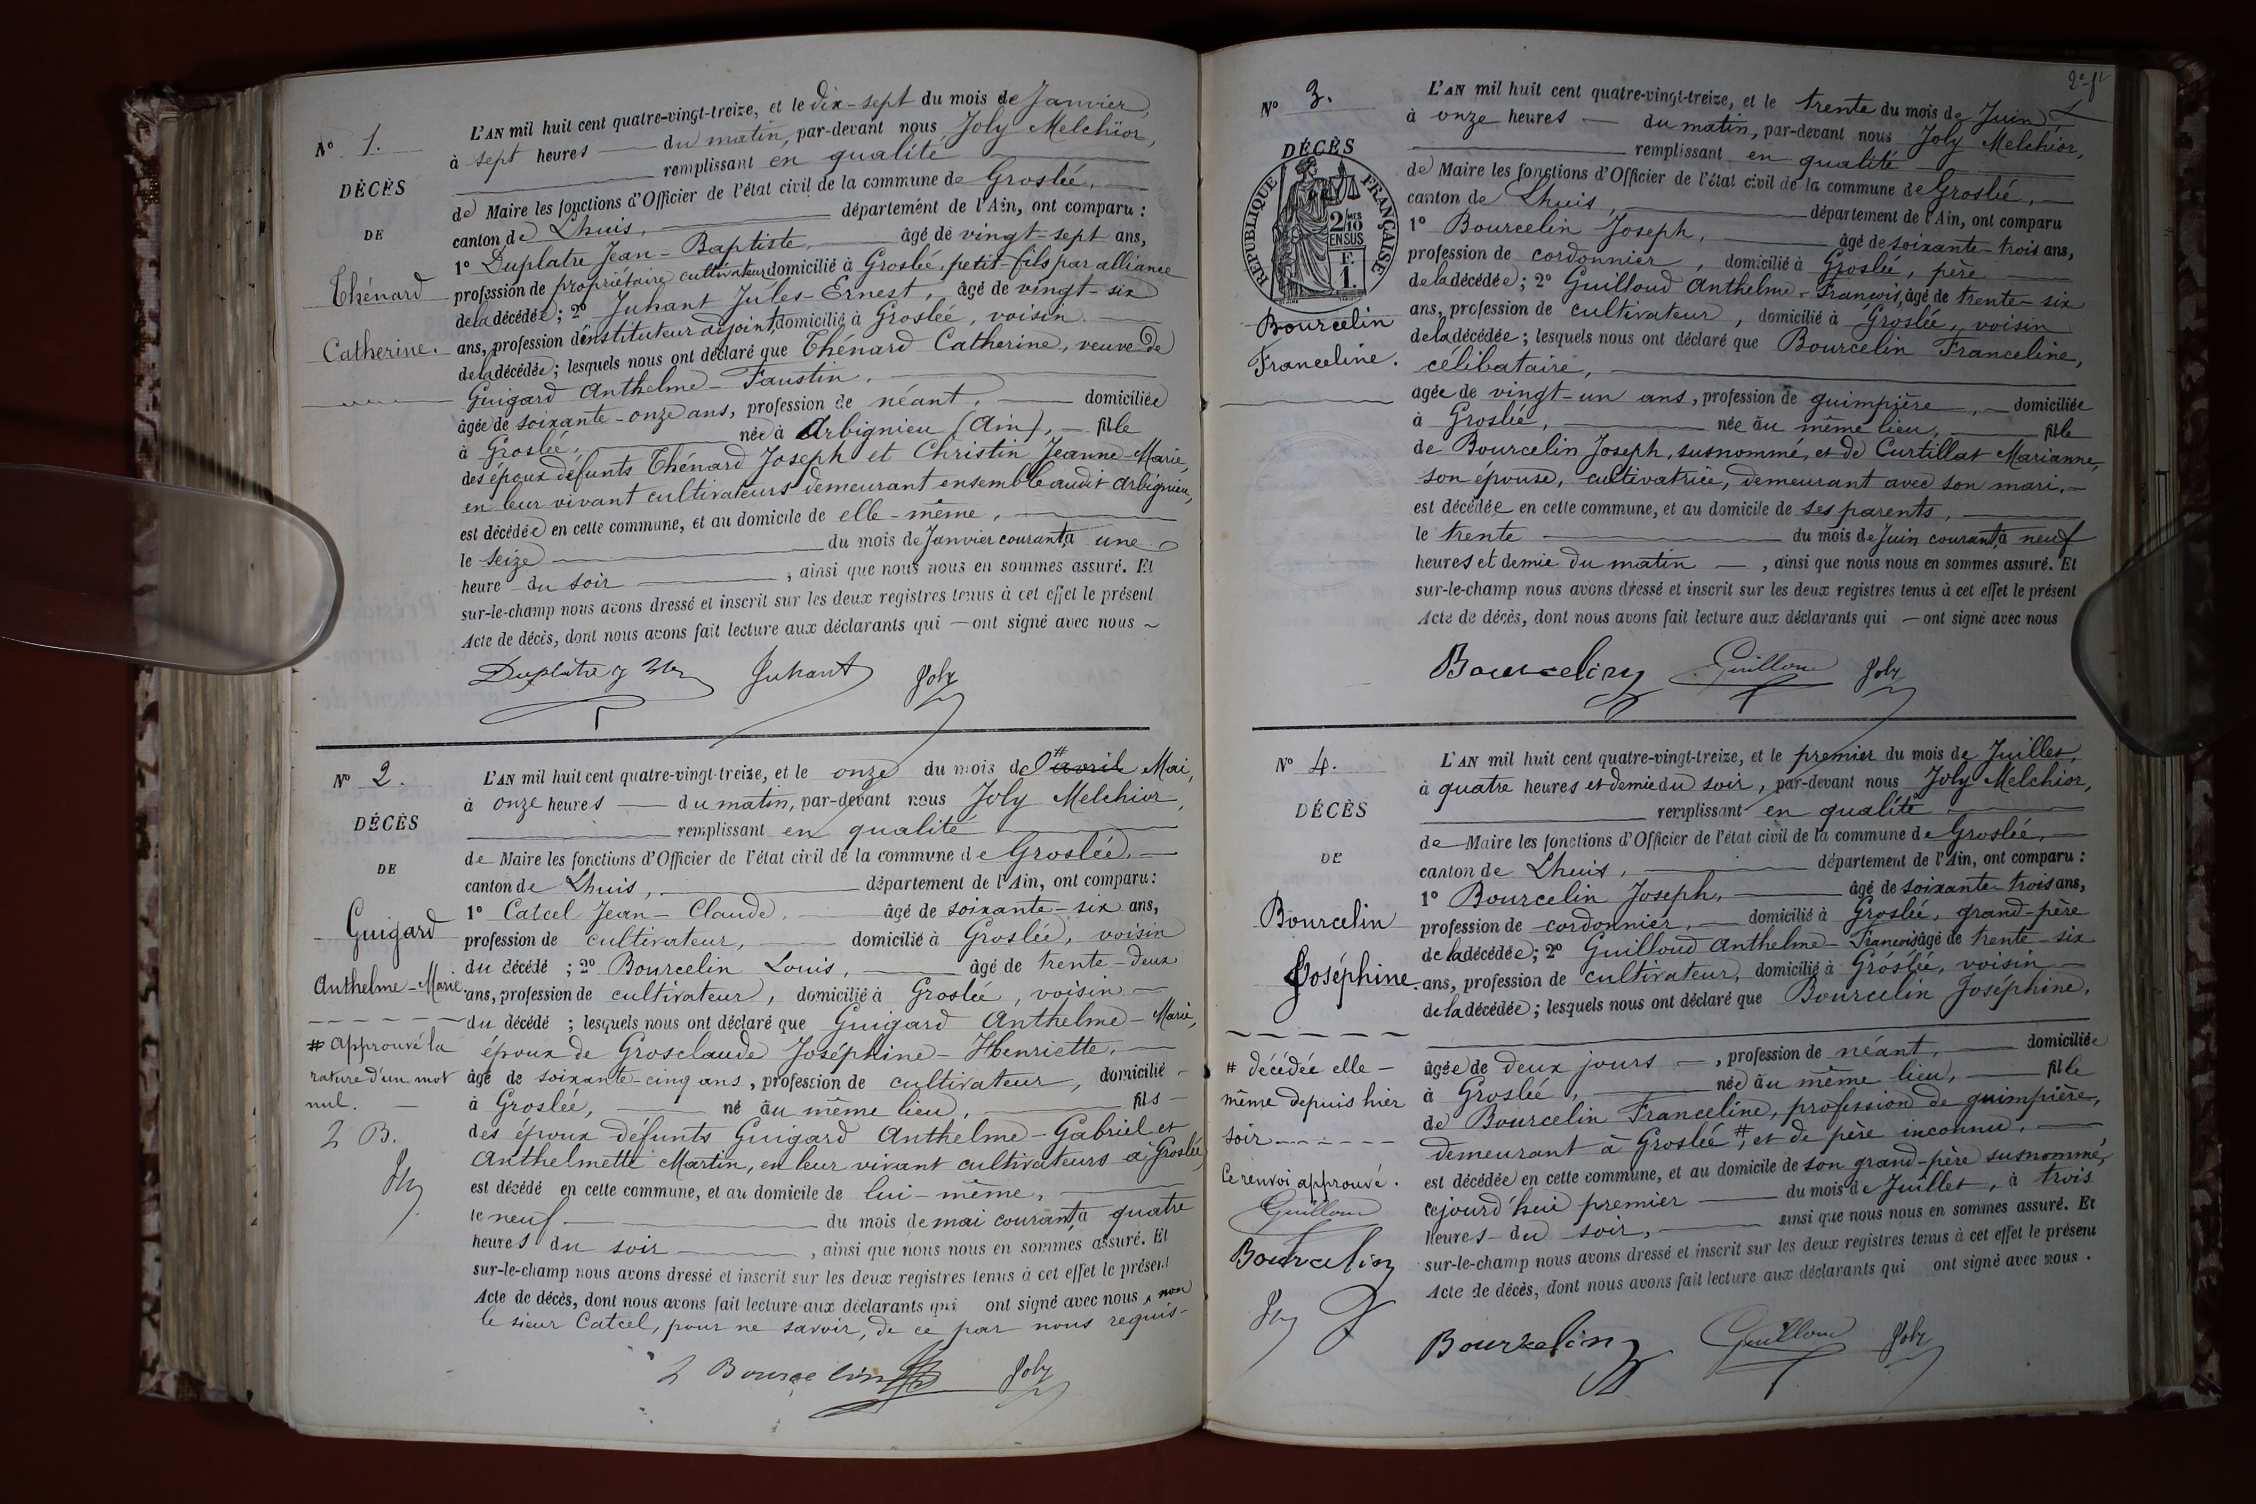 N° 1.
DÉCÈS
DE
Thénard
Catherine.
L'AN mil huit cent quatre-vingt-treize, et le dix-sept du mois de Janvier,
à sept heures du matin, par-devant nous Joly Melchior,
remplissant en qualité
de Maire les fonctions d'Officier de l'état civil de la commune de Groslée,
canton de Lhuis, département de l'Ain, ont comparu :
1° Duplatre Jean-Baptiste, âgé de vingt-sept ans,
profession de propriétaire cultivateur domicilié à Groslée, petit-fils par alliance
de la décédée ; 2° Juhant Jules-Ernest, âgé de vingt-six
ans, profession d'instituteur adjoint, domicilié à Groslée, voisin
de la décédée ; lesquels nous ont déclaré que Thénard Catherine, veuve de
Guigard Anthelme-Faustin,
âgée de soixante-onze ans, profession de néant, domiciliée
à Groslée, née à Arbignieu (Ain), fille
des époux défunts Thénard Joseph et Christin Jeanne-Marie,
en leur vivant cultivateurs demeurant ensemble audit Arbignieu,
est décédée en cette commune, et au domicile de elle-même,
le seize du mois de Janvier courant, à une
heure du soir, ainsi que nous nous en sommes assuré. Et
sur-le-champ nous avons dressé et inscrit sur les deux registres tenus à cet effet le présent
Acte de décès, dont nous avons fait lecture aux déclarants qui — ont signé avec nous
Duplatre J Juhant Joly
N° 2.
DÉCÈS
DE
Guigard
Anthelme-Marie.
# approuvé la
rature d'un mot
nul.
L B.
Joly
L'AN mil huit cent quatre-vingt-treize, et le onze du mois d'avril # Mai,
à onze heures du matin, par-devant nous Joly Melchior,
remplissant en qualité
de Maire les fonctions d'Officier de l'état civil de la commune de Groslée,
canton de Lhuis, département de l'Ain, ont comparu :
1° Catcel Jean-Claude, âgé de soixante-six ans,
profession de cultivateur, domicilié à Groslée, voisin
du décédé ; 2° Bourcelin Louis, âgé de trente-deux
ans, profession de cultivateur, domicilié à Groslée, voisin
du décédé ; lesquels nous ont déclaré que Guigard Anthelme-Marie,
époux de Grosclaude Joséphine-Henriette,
âgé de soixante-cinq ans, profession de cultivateur, domicilié
à Groslée, né au même lieu, fils
des époux défunts Guigard Anthelme-Gabriel et
Anthelmette Martin, en leur vivant cultivateurs à Groslée,
est décédé en cette commune, et au domicile de lui-même,
le neuf du mois de mai courant, à quatre
heures du soir, ainsi que nous nous en sommes assuré. Et
sur-le-champ nous avons dressé et inscrit sur les deux registres tenus à cet effet le présent
Acte de décès, dont nous avons fait lecture aux déclarants qui ont signé avec nous, non
le sieur Catcel, pour ne savoir, de ce par nous requis.
L Bourcelin Joly
N° 3.
DÉCÈS
RÉPUBLIQUE FRANÇAISE
2/10MES
EN SUS
F.
1.
Bourcelin
Franceline.
L'AN mil huit cent quatre-vingt-treize, et le trente du mois de Juin
à onze heures — du matin, par-devant nous Joly Melchior,
remplissant en qualité
de Maire les fonctions d'Officier de l'état civil de la commune de Groslée,
canton de Lhuis, département de l'Ain, ont comparu
1° Bourcelin Joseph, âgé de soixante-trois ans,
profession de cordonnier, domicilié à Groslée, père
de la décédée ; 2° Guilloud Anthelme-François, âgé de trente-six
ans, profession de cultivateur, domicilié à Groslée, voisin
de la décédée ; lesquels nous ont déclaré que Bourcelin Franceline,
célibataire,
agée de vingt-un ans, profession de guimpière, domiciliée
à Groslée, née au même lieu, fille
de Bourcelin Joseph, susnommé, et de Curtillat Marianne,
son épouse, cultivatrice, demeurant avec son mari,
est décédée en cette commune, et au domicile de ses parents,
le trente du mois de Juin courant, à neuf
heures et demie du matin, ainsi que nous nous en sommes assuré. Et
sur-le-champ nous avons dressé et inscrit sur les deux registres tenus à cet effet le présent
Acte de décès, dont nous avons fait lecture aux déclarants qui — ont signé avec nous
Bourcelin Guilloud Joly
N° 4.
DÉCÈS
DE
Bourcelin
Joséphine.
# décédée elle-
même depuis hier
soir
Ce renvoi approuvé.
Guilloud
Bourcelin
Joly
L'AN mil huit cent quatre-vingt-treize, et le premier du mois de Juillet,
à quatre heures et demie du soir, par-devant nous Joly Melchior,
remplissant en qualité
de Maire les fonctions d'Officier de l'état civil de la commune de Groslée,
canton de Lhuis, département de l'Ain, ont comparu :
1° Bourcelin Joseph, âgé de soixante-trois ans,
profession de cordonnier, domicilié à Groslée, grand-père
de la décédée ; 2° Guilloud Anthelme-François âgé de trente-six
ans, profession de cultivateur, domicilié à Groslée, voisin
de la décédée ; lesquels nous ont déclaré que Bourcelin Joséphine,
âgée de deux jours, profession de néant, domiciliée
à Groslée, née au même lieu, fille
de Bourcelin Franceline, profession de guimpière,
demeurant à Groslée #, et de père inconnu,
est décédée en cette commune, et au domicile de son grand-père susnommé,
cejourd'hui premier du mois de Juillet, à trois
heures du soir, ainsi que nous nous en sommes assuré. Et
sur-le-champ nous avons dressé et inscrit sur les deux registres tenus à cet effet le présent
Acte de décès, dont nous avons fait lecture aux déclarants qui ont signé avec nous.
Bourcelin Guilloud Joly